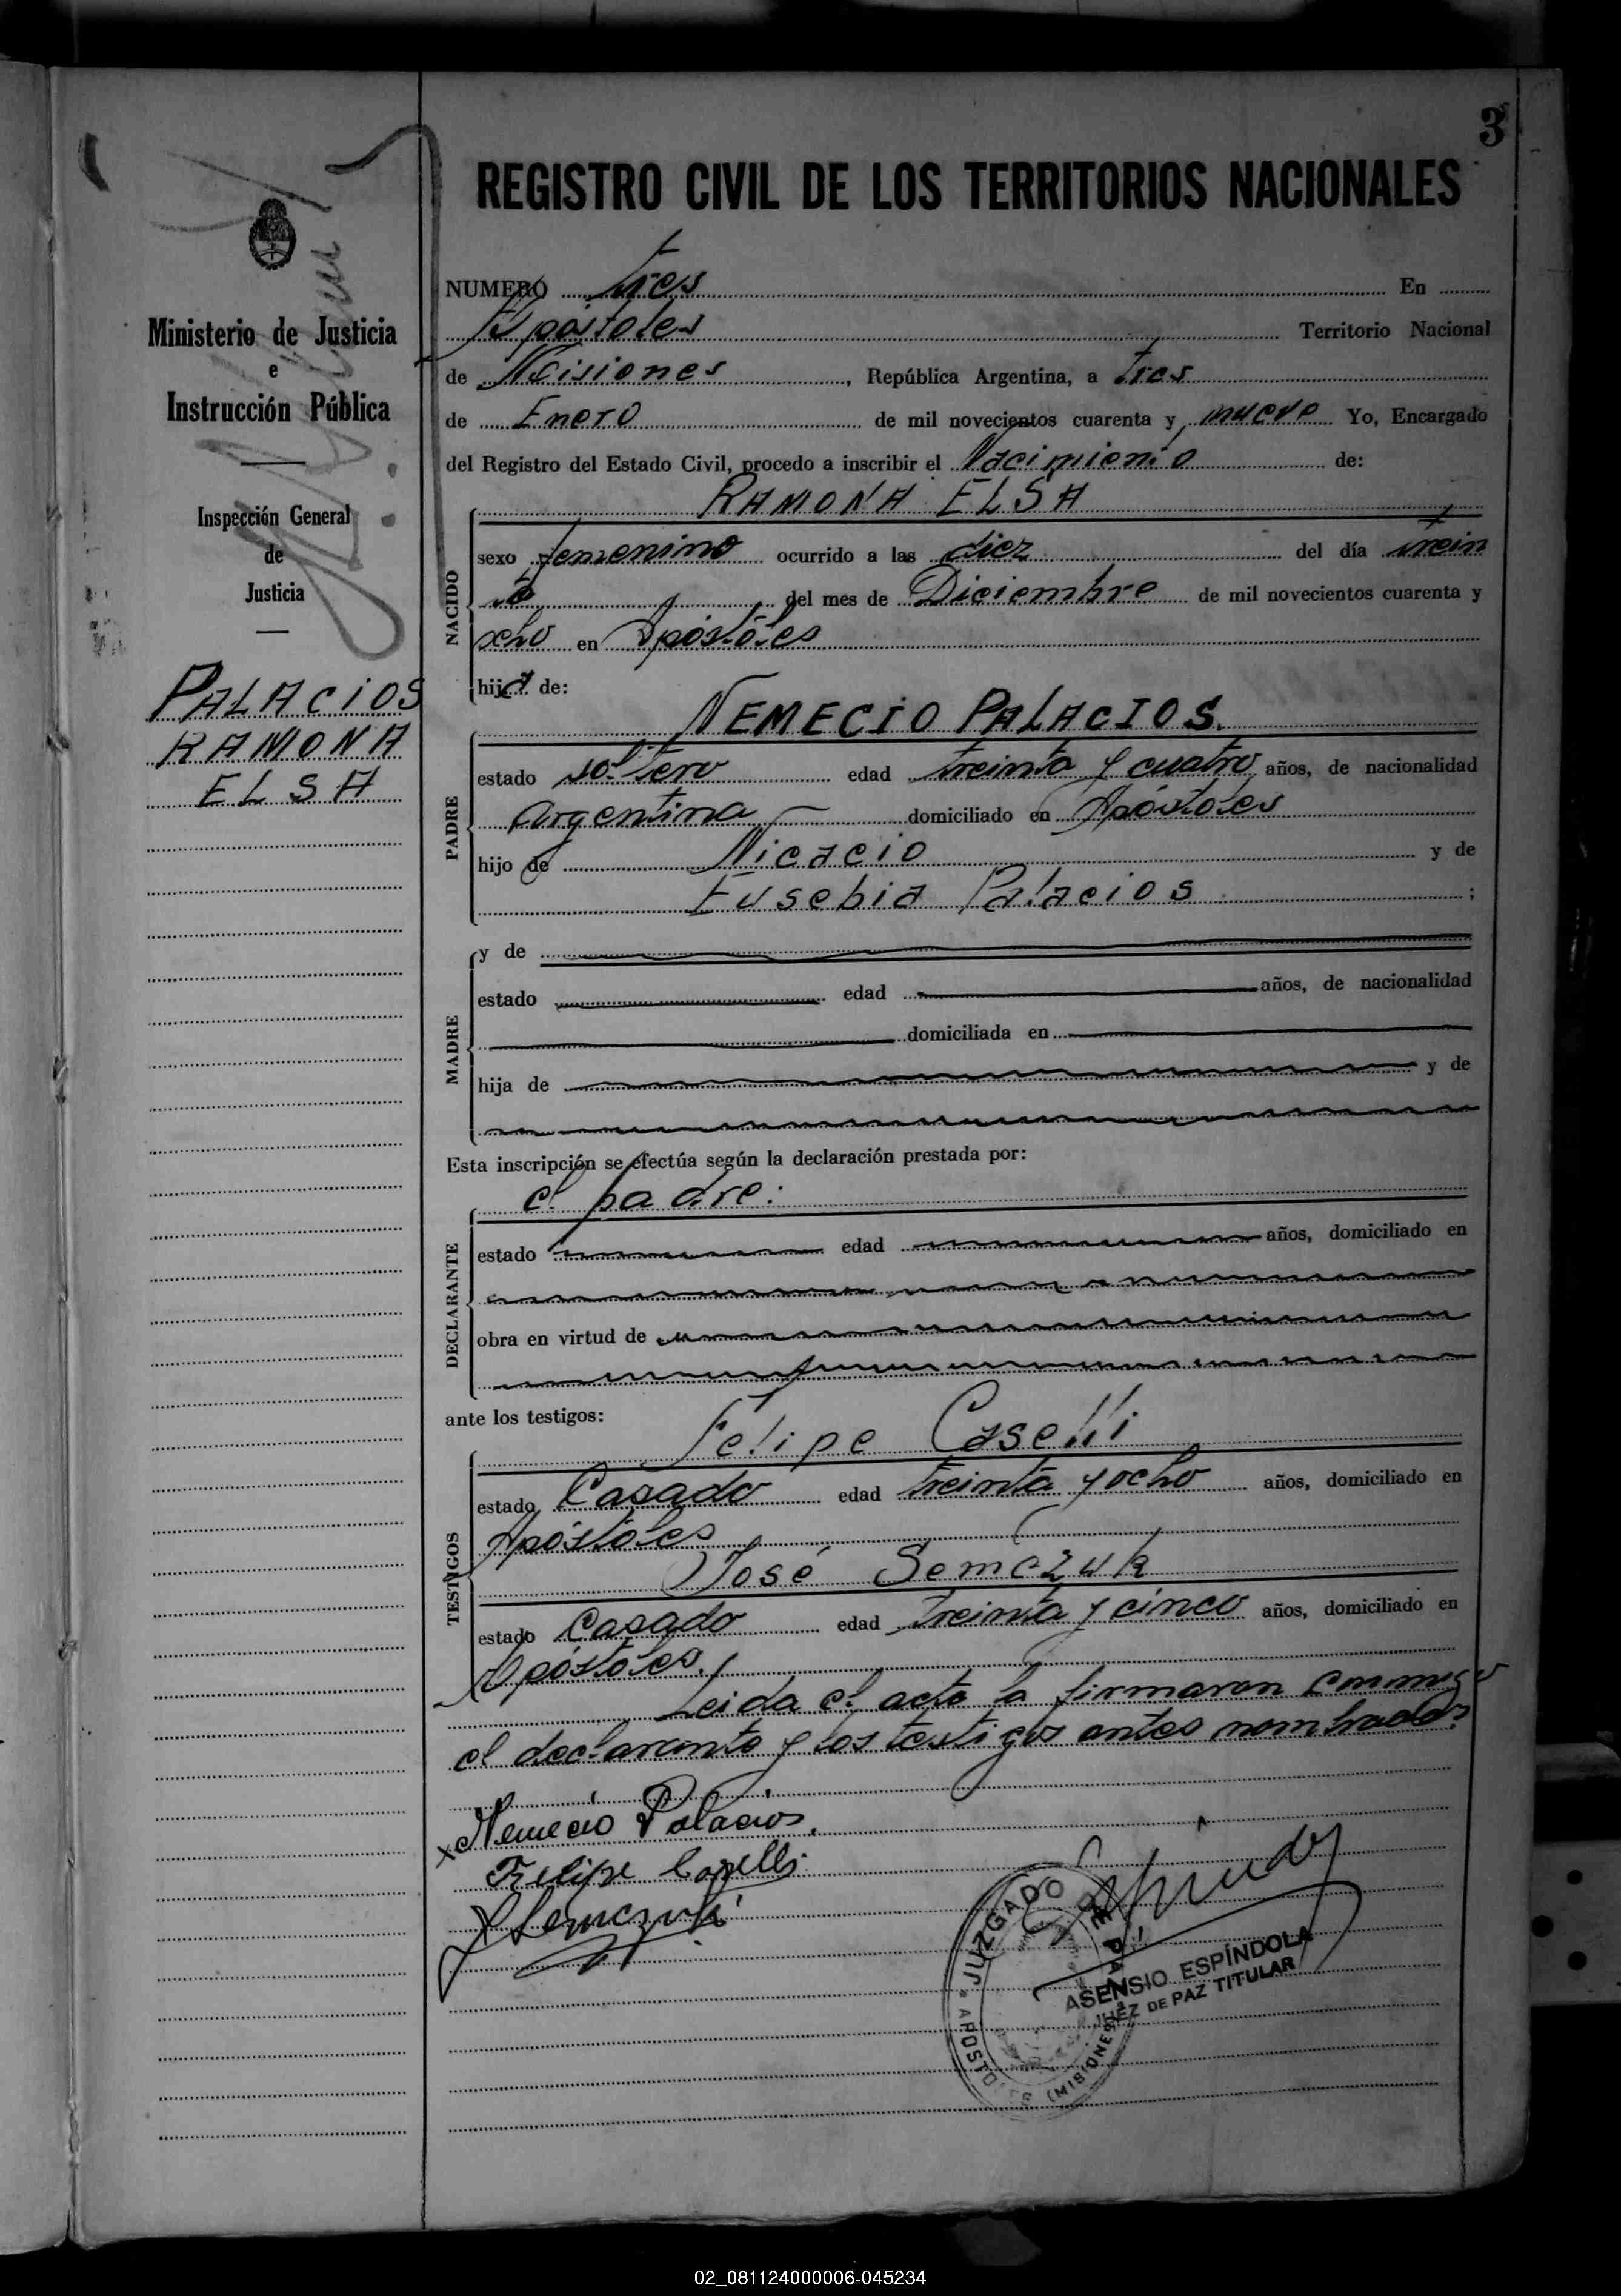 3
REGISTRO CIVIL DE LOS TERRITORIOS NACIONALES
Ministerio de Justicia
e
Instrucción Pública
Inspección General
de
Justicia
PALACIOS
RAMONA
ELSA
NUMERO tres En
Apóstoles Territorio Nacional
de Misiones, República Argentina, a tres
de Enero de mil novecientos cuarenta y nueve Yo, Encargado
del Registro del Estado Civil, procedo a inscribir el Nacimiento de:
RAMONA ELSA
NACIDO
sexo femenino ocurrido a las diez del día trein
ta del mes de Diciembre de mil novecientos cuarenta y
ocho en Apóstoles
hija de:
NEMECIO PALACIOS.
PADRE
estado soltero edad treinta y cuatro años, de nacionalidad
argentina domiciliado en Apóstoles
hijo de Nicacio y de
Eusebia Palacios ;
MADRE
y de
estado edad años, de nacionalidad
domiciliada en
hija de y de
Esta inscripción se efectúa según la declaración prestada por:
el padre:
DECLARANTE
estado edad años, domiciliado en
obra en virtud de
ante los testigos:
Felipe Caselli
TESTIGOS
estado Casado edad treinta y ocho años, domiciliado en
Apóstoles
José Semczuk
estado Casado edad treinta y cinco años, domiciliado en
Apóstoles.
Leida el acta la firmaron conmigo
el declarante y los testigos antes nombrados
Nemecio Palacios.
Felipe Caselli
Semczuk
JUZGADO DE PAZ
APOSTOLES (MISIONES)
ASENSIO ESPÍNDOLA
JUEZ DE PAZ TITULAR
02_081124000006-045234